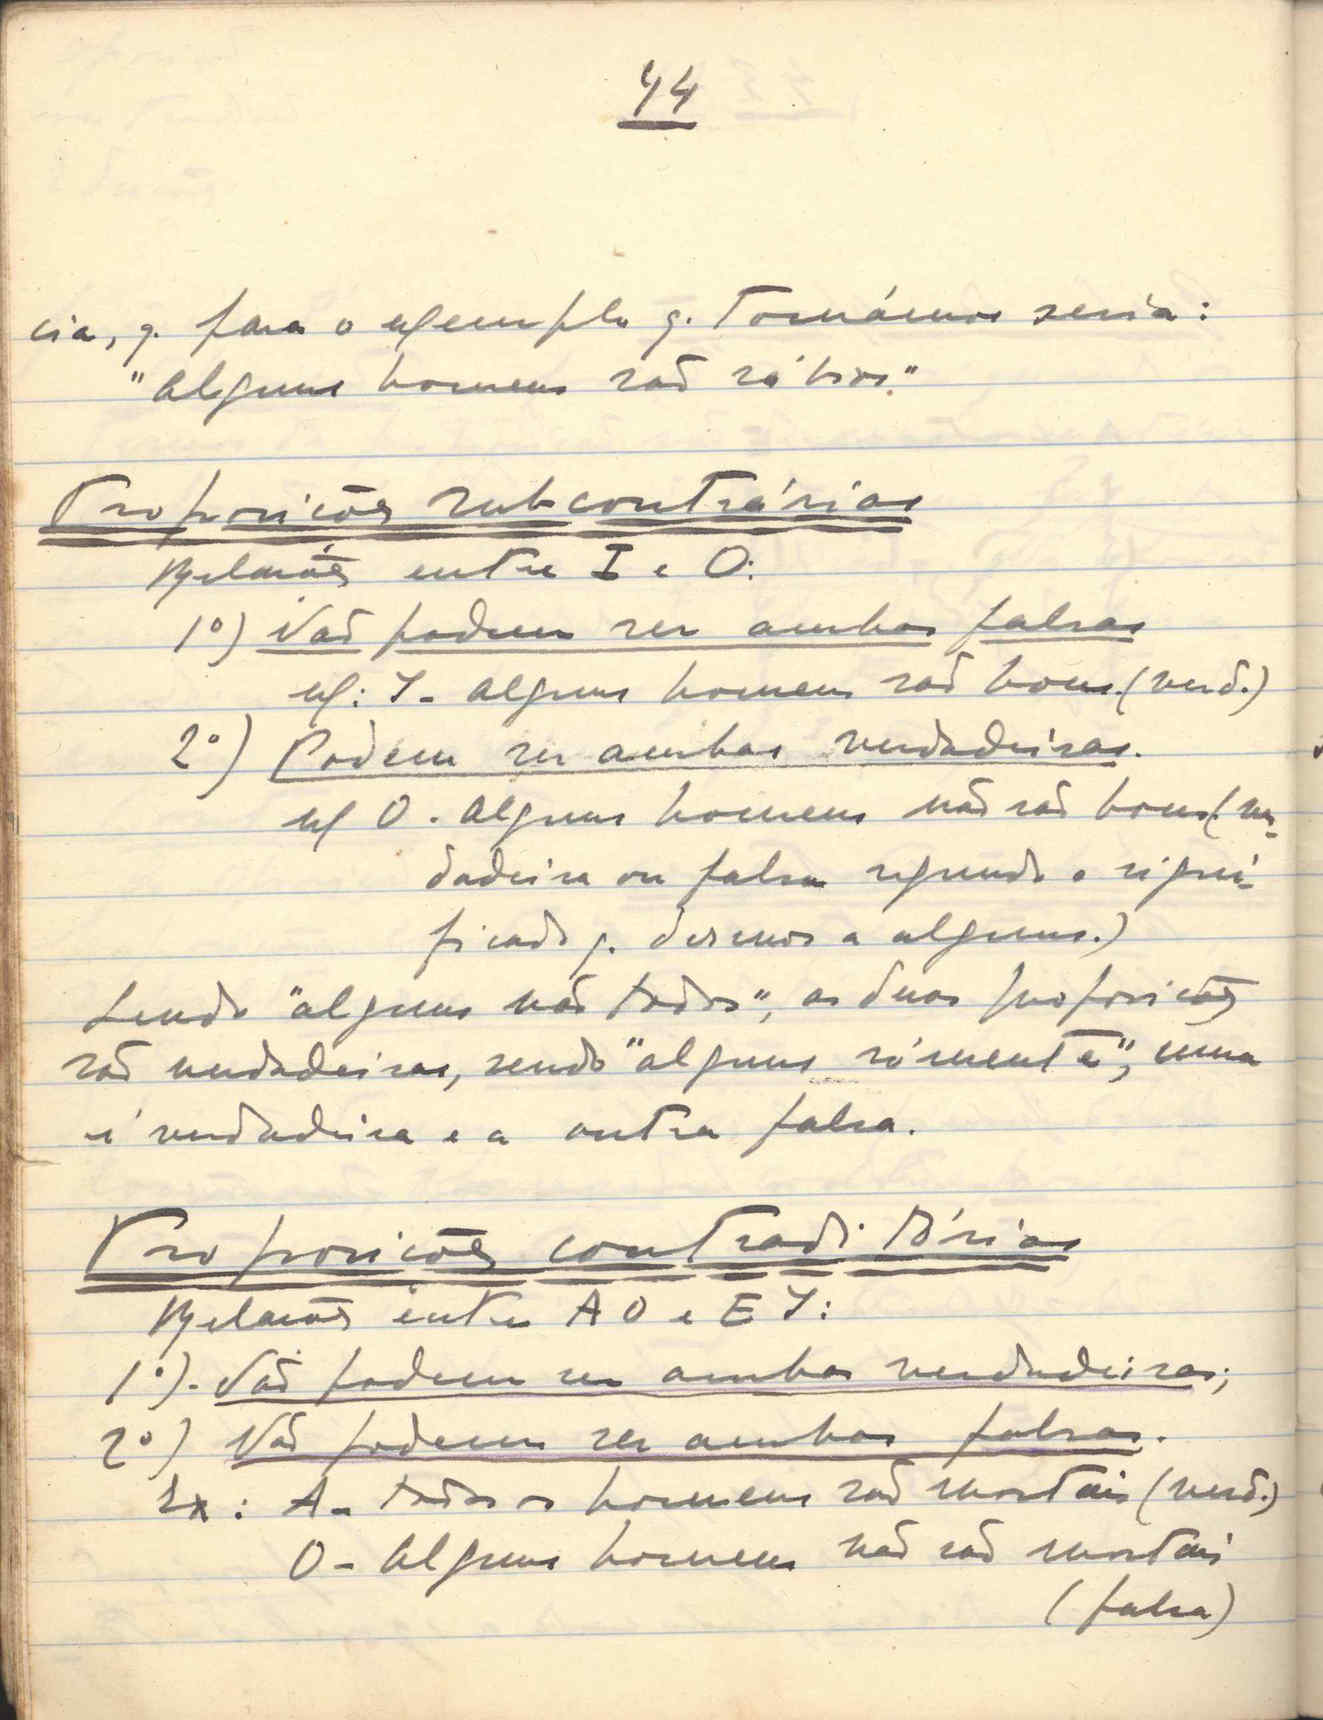 44
cia, q. para o exemplo q. tomámos seria:
"Alguns homens são sábios."
Proposições subcontrárias
Relações entre I e O:
1º) Não podem ser ambas falsas
ex: I - Alguns homens são bons. (verd.)
2º) Podem ser ambas verdadeiras.
ex O - Alguns homens não são bons (ver-
dadeira ou falsa segundo o signi-
ficado q. dermos a alguns.)
Sendo "alguns não todos", as duas proposições
são verdadeiras, sendo "alguns sómente", uma
é verdadeira e a outra falsa.
Proposições contraditórias
Relações entre A O e E I:
1º) - Não podem ser ambas verdadeiras;
2º) Não podem ser ambas falsas.
Ex: A - todos os homens são mortais (verd.)
O - Alguns homens não são mortais
(falsa)